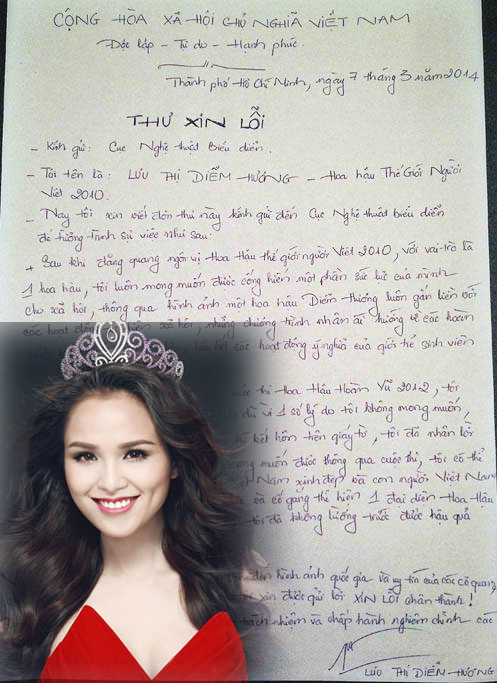 CỘNG HÒA XÃ HỘI CHỦ NGHĨA VIỆT NAM
Độc lập - Tự do - Hạnh phúc.
Thành phố Hồ Chí Minh, ngày 7 tháng 3 năm 2014
THƯ XIN LỖI
- Kính gửi: Cục Nghệ thuật Biểu diễn.
- Tôi tên là: LƯU THỊ DIỄM HƯƠNG - Hoa hậu Thế Giới Người
Việt 2010.
- Nay tôi xin viết đơn thư này kính gửi đến Cục Nghệ thuật biểu diễn
để tường trình sự việc như sau:
+ Sau khi đăng quang ngôi vị Hoa Hậu thế giới người Việt 2010, với vai trò là
1 hoa hậu, tôi luôn mong muốn được cống hiến một phần sức lực của mình
cho xã hội, thông qua hình ảnh một hoa hậu Diễm Hương luôn gắn liền với
các hoạt động xã hội, những chương trình nhân ái hướng về các hoàn
hết các hoạt động ý nghĩa của giới trẻ sinh viên
cuộc thi Hoa Hậu Hoàn Vũ 2012, tôi
dù vì 1 số lý do tôi không mong muốn,
kết hôn trên giấy tờ, tôi đã nhân lời
mong muốn được thông qua cuộc thi, tôi có thể
Nam xinh đẹp và con người Việt Nam
và cố gắng thể hiện 1 đại diện Hoa Hậu
tôi đã không lường trước được hậu quả
đến hình ảnh quốc gia và uy tín của các cơ quan,
xin được gửi lời XIN LỖI chân thành!
trách nhiệm và chấp hành nghiêm chỉnh các
LƯU THỊ DIỄM HƯƠNG